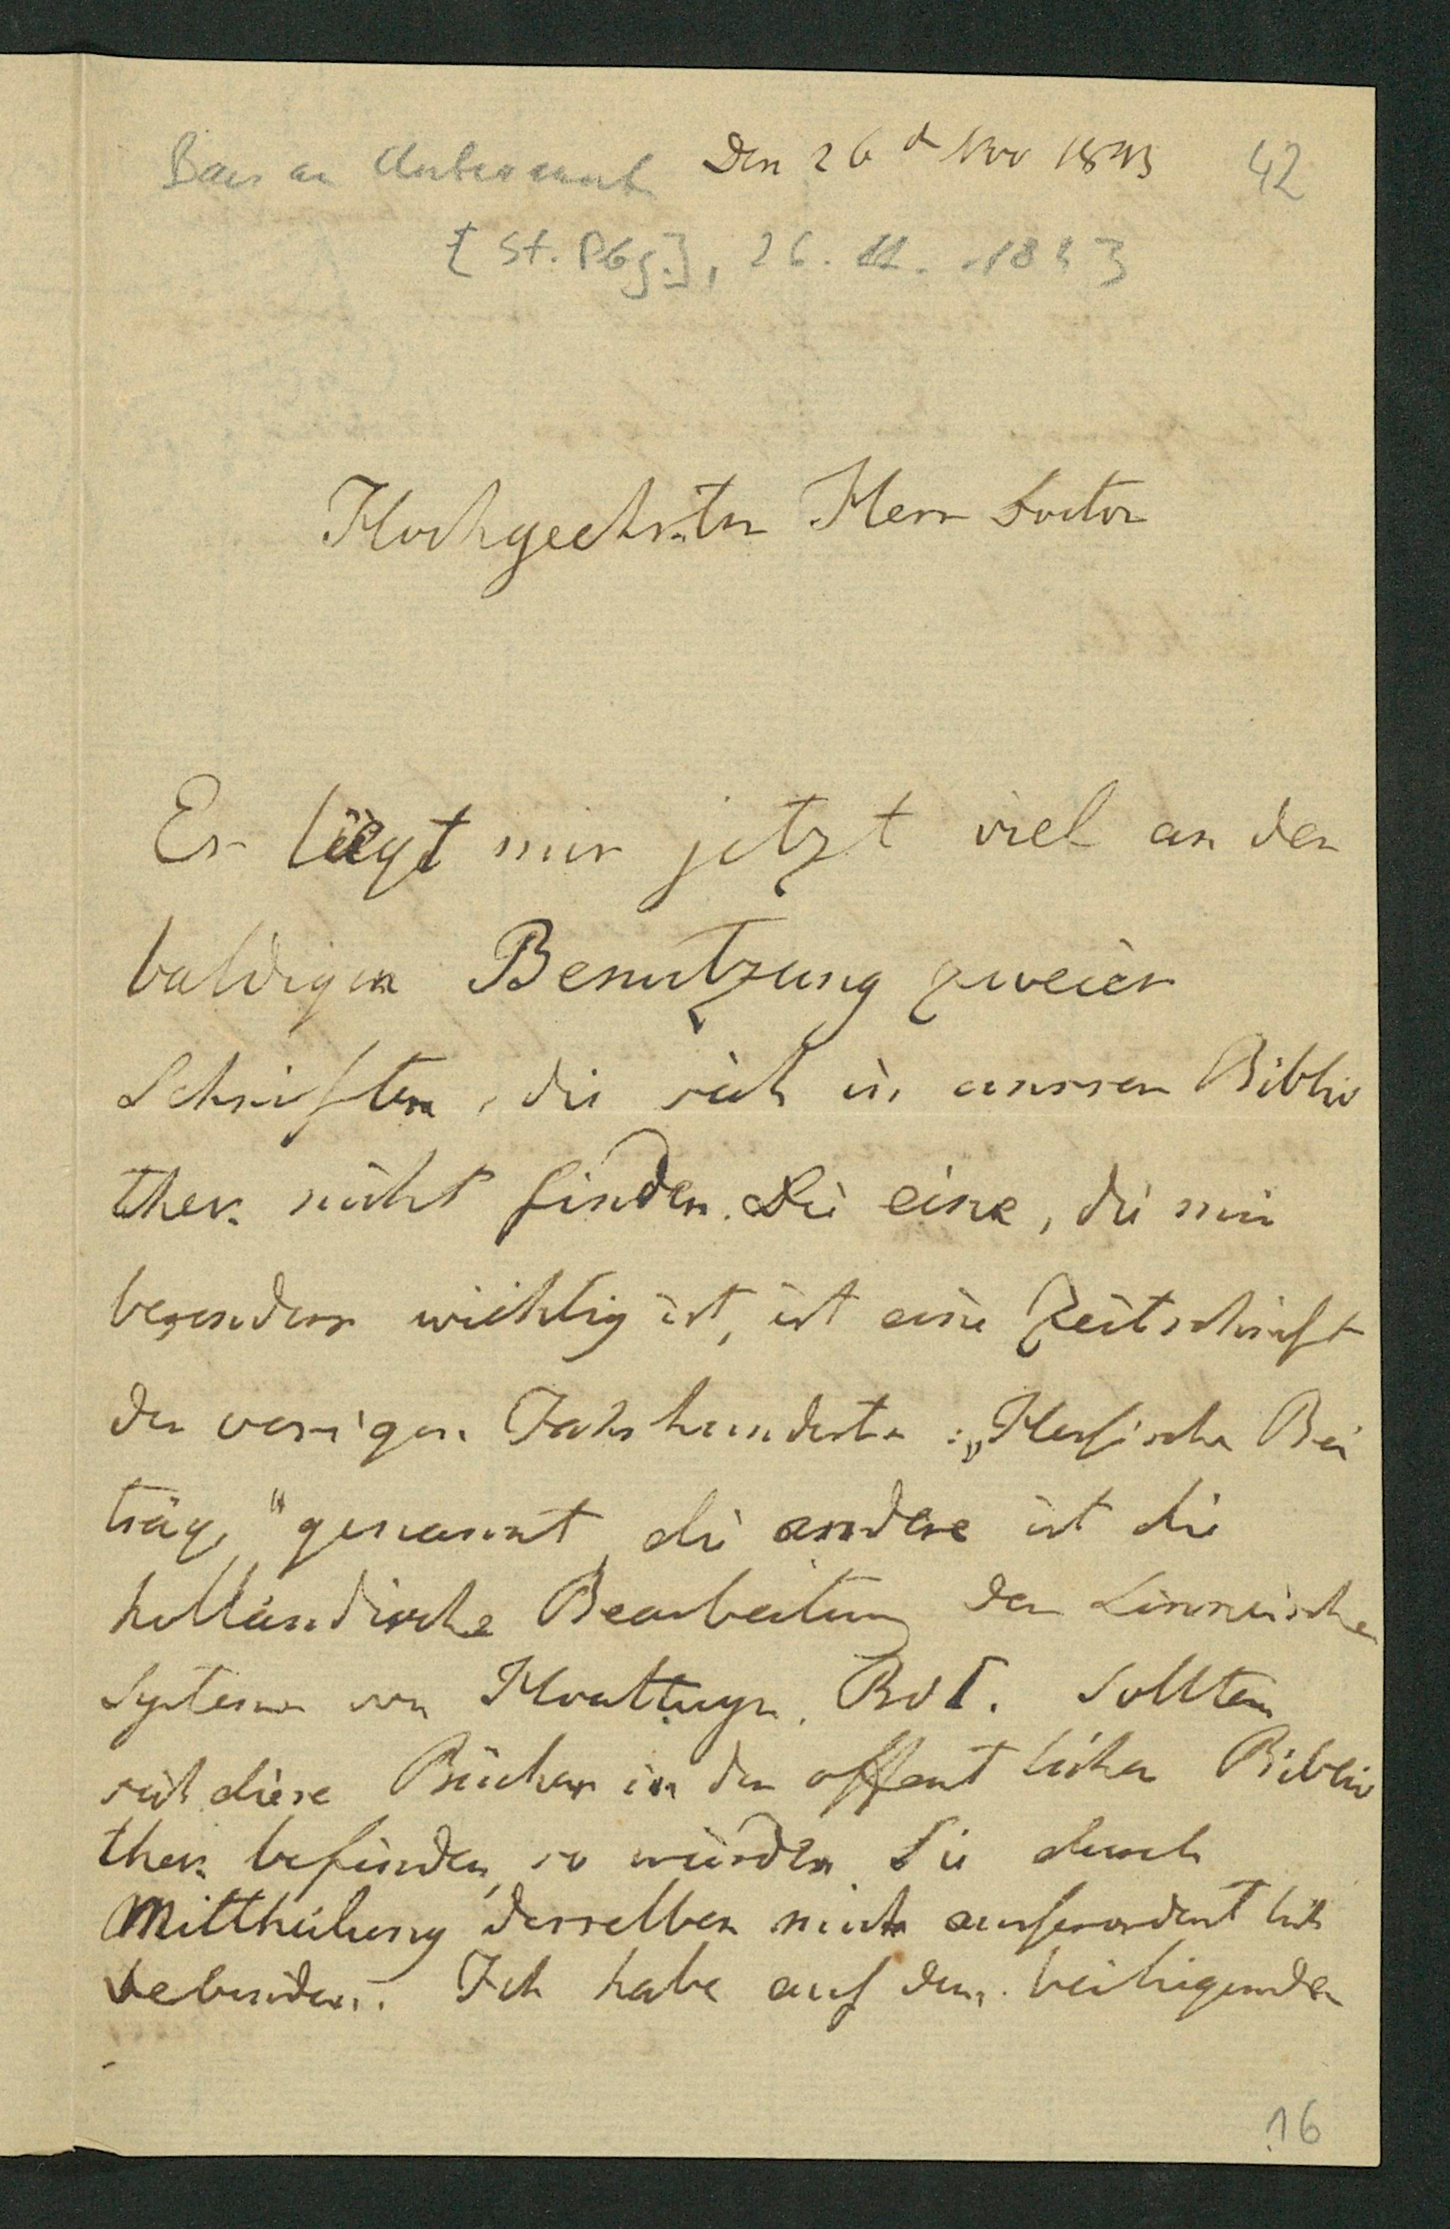 Baer an Unbekannt Den 26 d Nov 1843 42
[St. Pbg.], 26. 11. 1843
Hochgeehrter Herr Doctor
Es liegt mir jetzt viel an der
baldigen Benutzung zweier
Schriften, die sich in unsrer Biblio
thek nicht finden. Die eine, die mir
besonders wichtig ist, ist eine Zeitschrift
des vorigen Jahrhunderts: „Hessische Bei
träge" genannt, die andere ist die
holländische Bearbeitung des Linneischen
Systems von Houttuyn. Bd I. Sollten
sich diese Bücher in der öffentlichen Biblio
thek befinden, so würden Sie durch
Mittheilung derselben mich ausserordentlich
verbinden. Ich habe auf dem beiliegenden
16